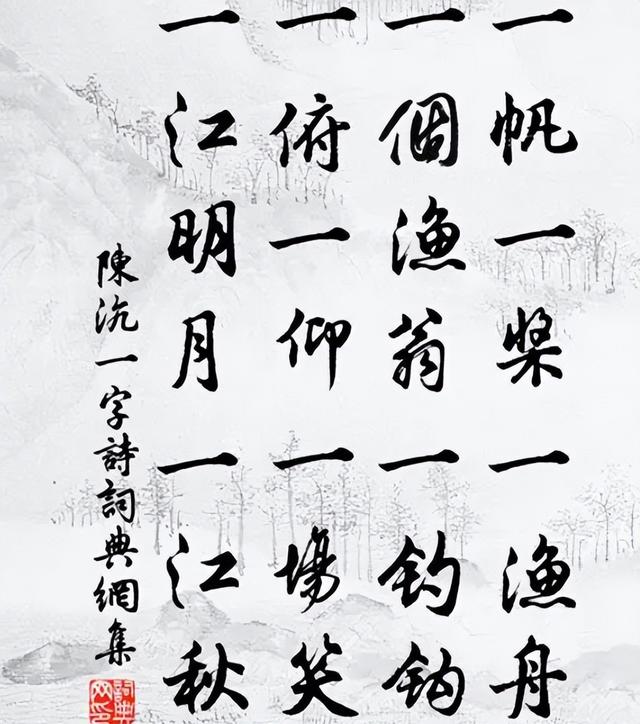 一帆一桨一漁舟
一個漁翁一釣鈎
一俯一仰一場笑
一江明月一江秋
陳沆一字詩詞典網集
詞典网印